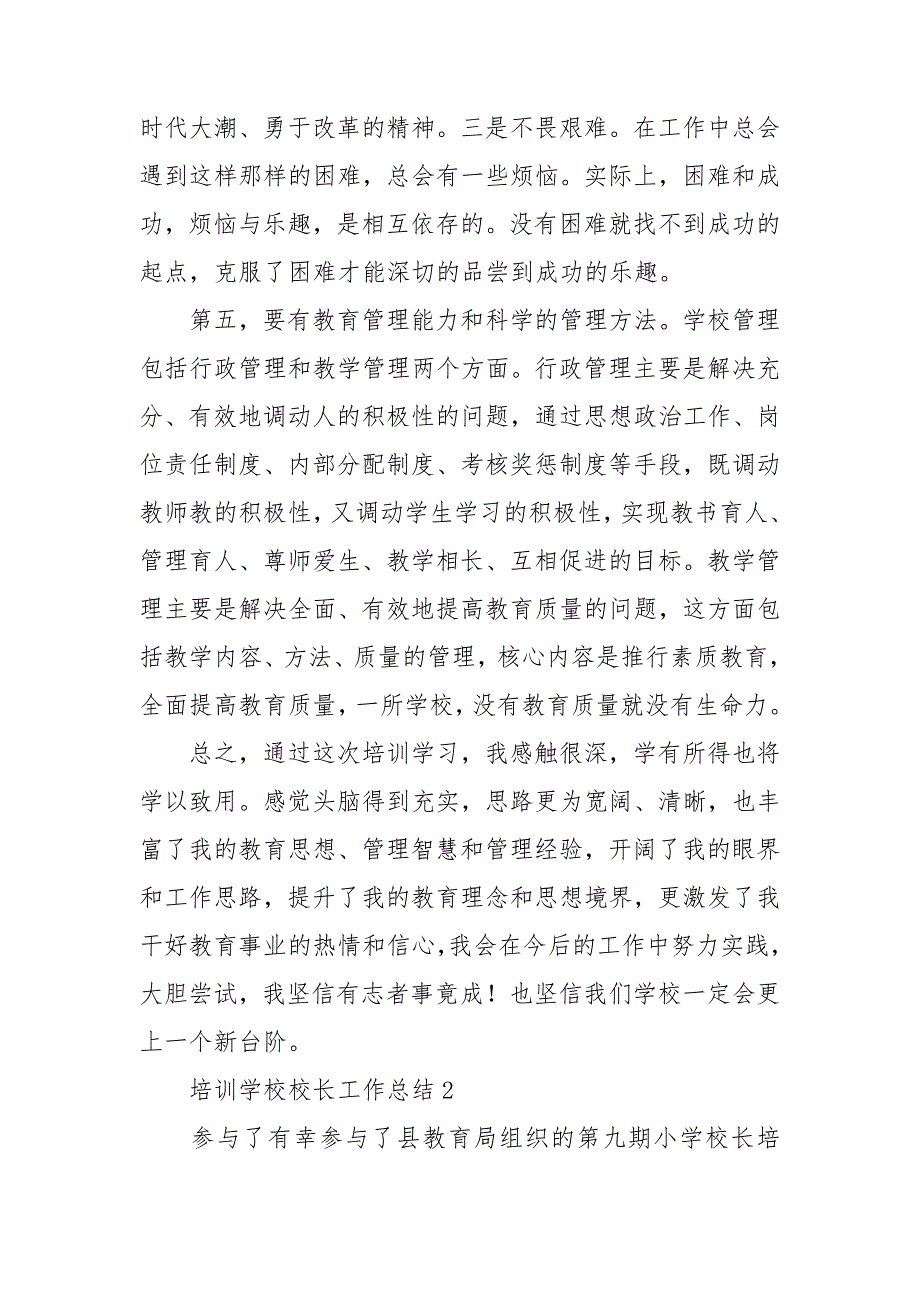 时代大潮、勇于改革的精神。三是不畏艰难。在工作中总会
遇到这样那样的困难，总会有一些烦恼。实际上，困难和成
功，烦恼与乐趣，是相互依存的。没有困难就找不到成功的
起点，克服了困难才能深切的品尝到成功的乐趣。
第五，要有教育管理能力和科学的管理方法。学校管理
包括行政管理和教学管理两个方面。行政管理主要是解决充
分、有效地调动人的积极性的问题，通过思想政治工作、岗
位责任制度、内部分配制度、考核奖惩制度等手段，既调动
教师教的积极性，又调动学生学习的积极性，实现教书育人、
管理育人、尊师爱生、教学相长、互相促进的目标。教学管
理主要是解决全面、有效地提高教育质量的问题，这方面包
括教学内容、方法、质量的管理，核心内容是推行素质教育，
全面提高教育质量，一所学校，没有教育质量就没有生命力。
总之，通过这次培训学习，我感触很深，学有所得也将
学以致用。感觉头脑得到充实，思路更为宽阔、清晰，也丰
富了我的教育思想、管理智慧和管理经验，开阔了我的眼界
和工作思路，提升了我的教育理念和思想境界，更激发了我
干好教育事业的热情和信心，我会在今后的工作中努力实践，
大胆尝试，我坚信有志者事竟成！也坚信我们学校一定会更
上一个新台阶。
培训学校校长工作总结2
参与了有幸参与了县教育局组织的第九期小学校长培